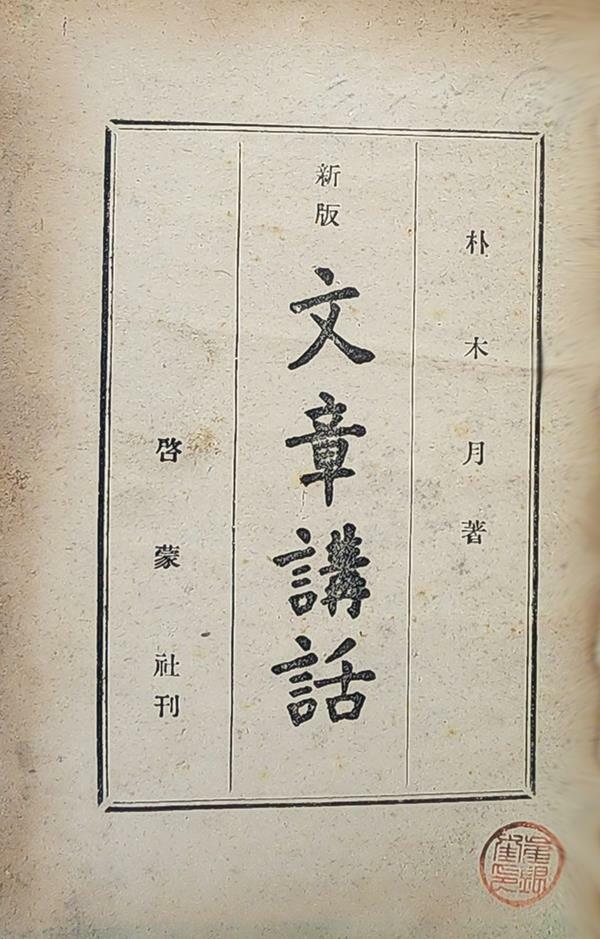 朴木月著
新版
文章講話
啓蒙社刊